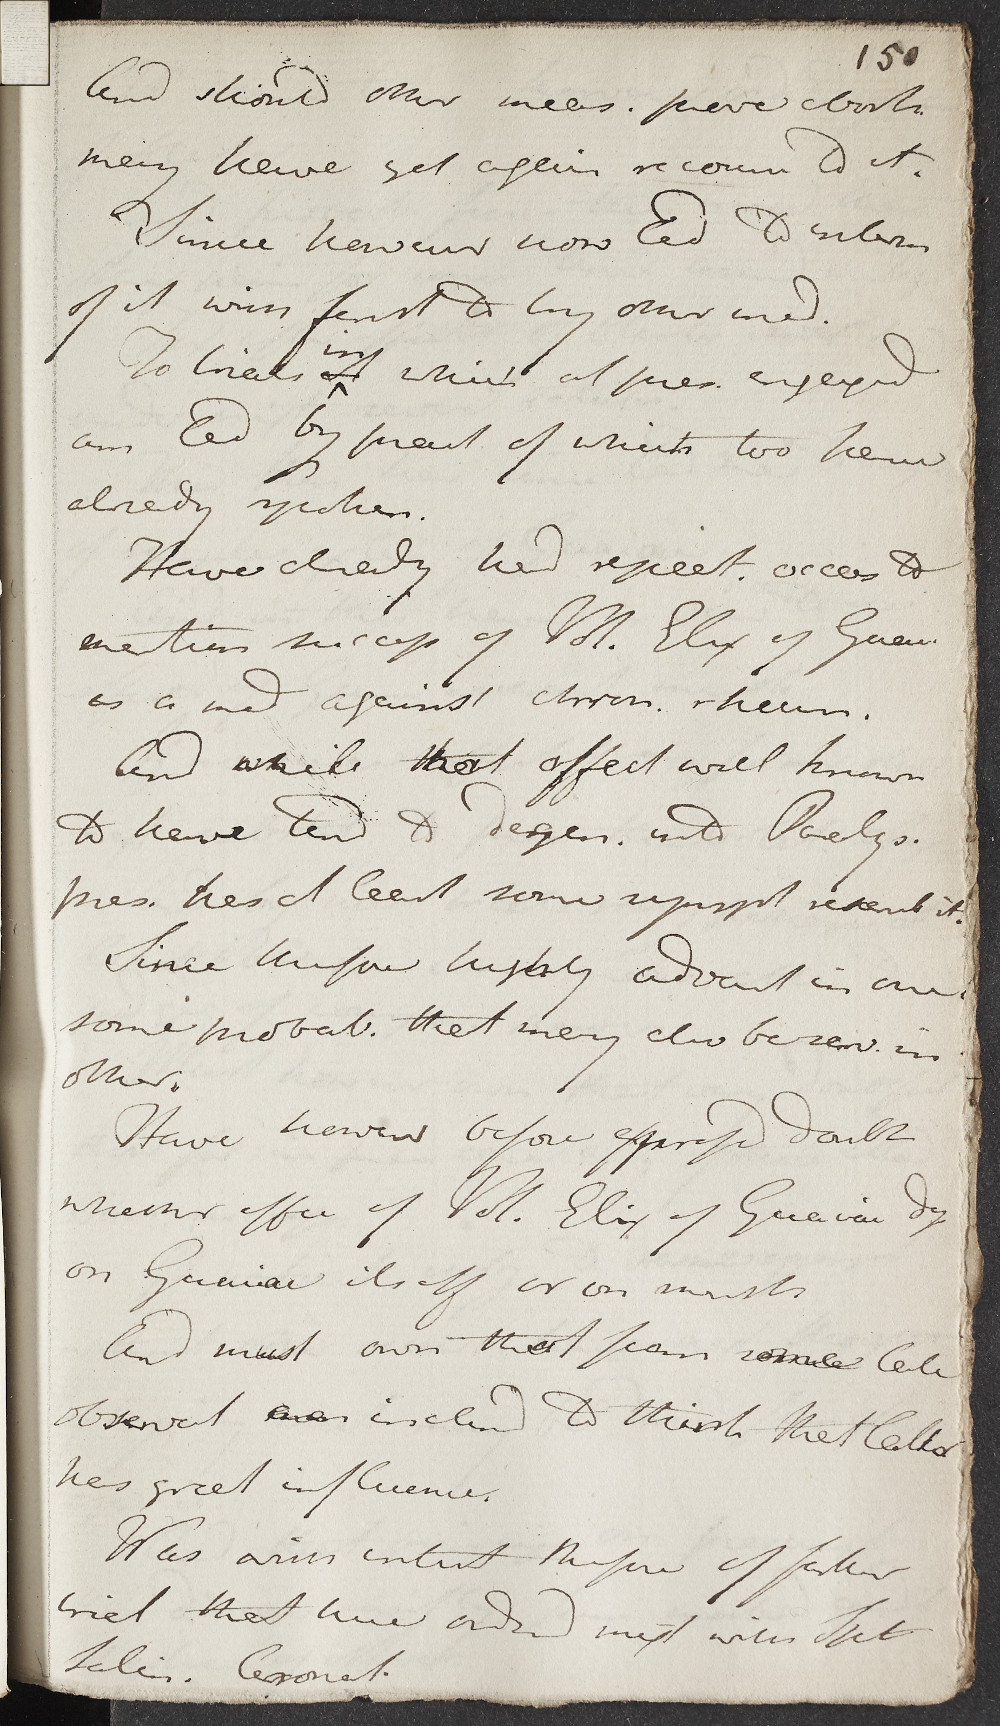 150
And should other meas. prove abort.
may have yet again recourse to it.
Since however now led to interm
of it wish first to try other med.
To trials in which at pres. engaged
am led by preced of which too have
already spoken.
Have already had repeat. occas to
mention success of Vol. Elix of Guaiac
as a med against chron. rheum.
And while that affect well known
to have tend to degen. into Paralys.
pres. has at least some sympt resemb it.
Since therefore highly advant in one
some probab. that may also be serv. in
other.
Have however before expressd doubt
whether effic of Vol. Elix of Guaiac dep
on Guaiac itself or on menstr
And must own that from some late
observat am inclind to think that latter
has great influence.
Was with intent therefore of farther
trial that have ordrd mixt with Spt
Salin. Aromat.